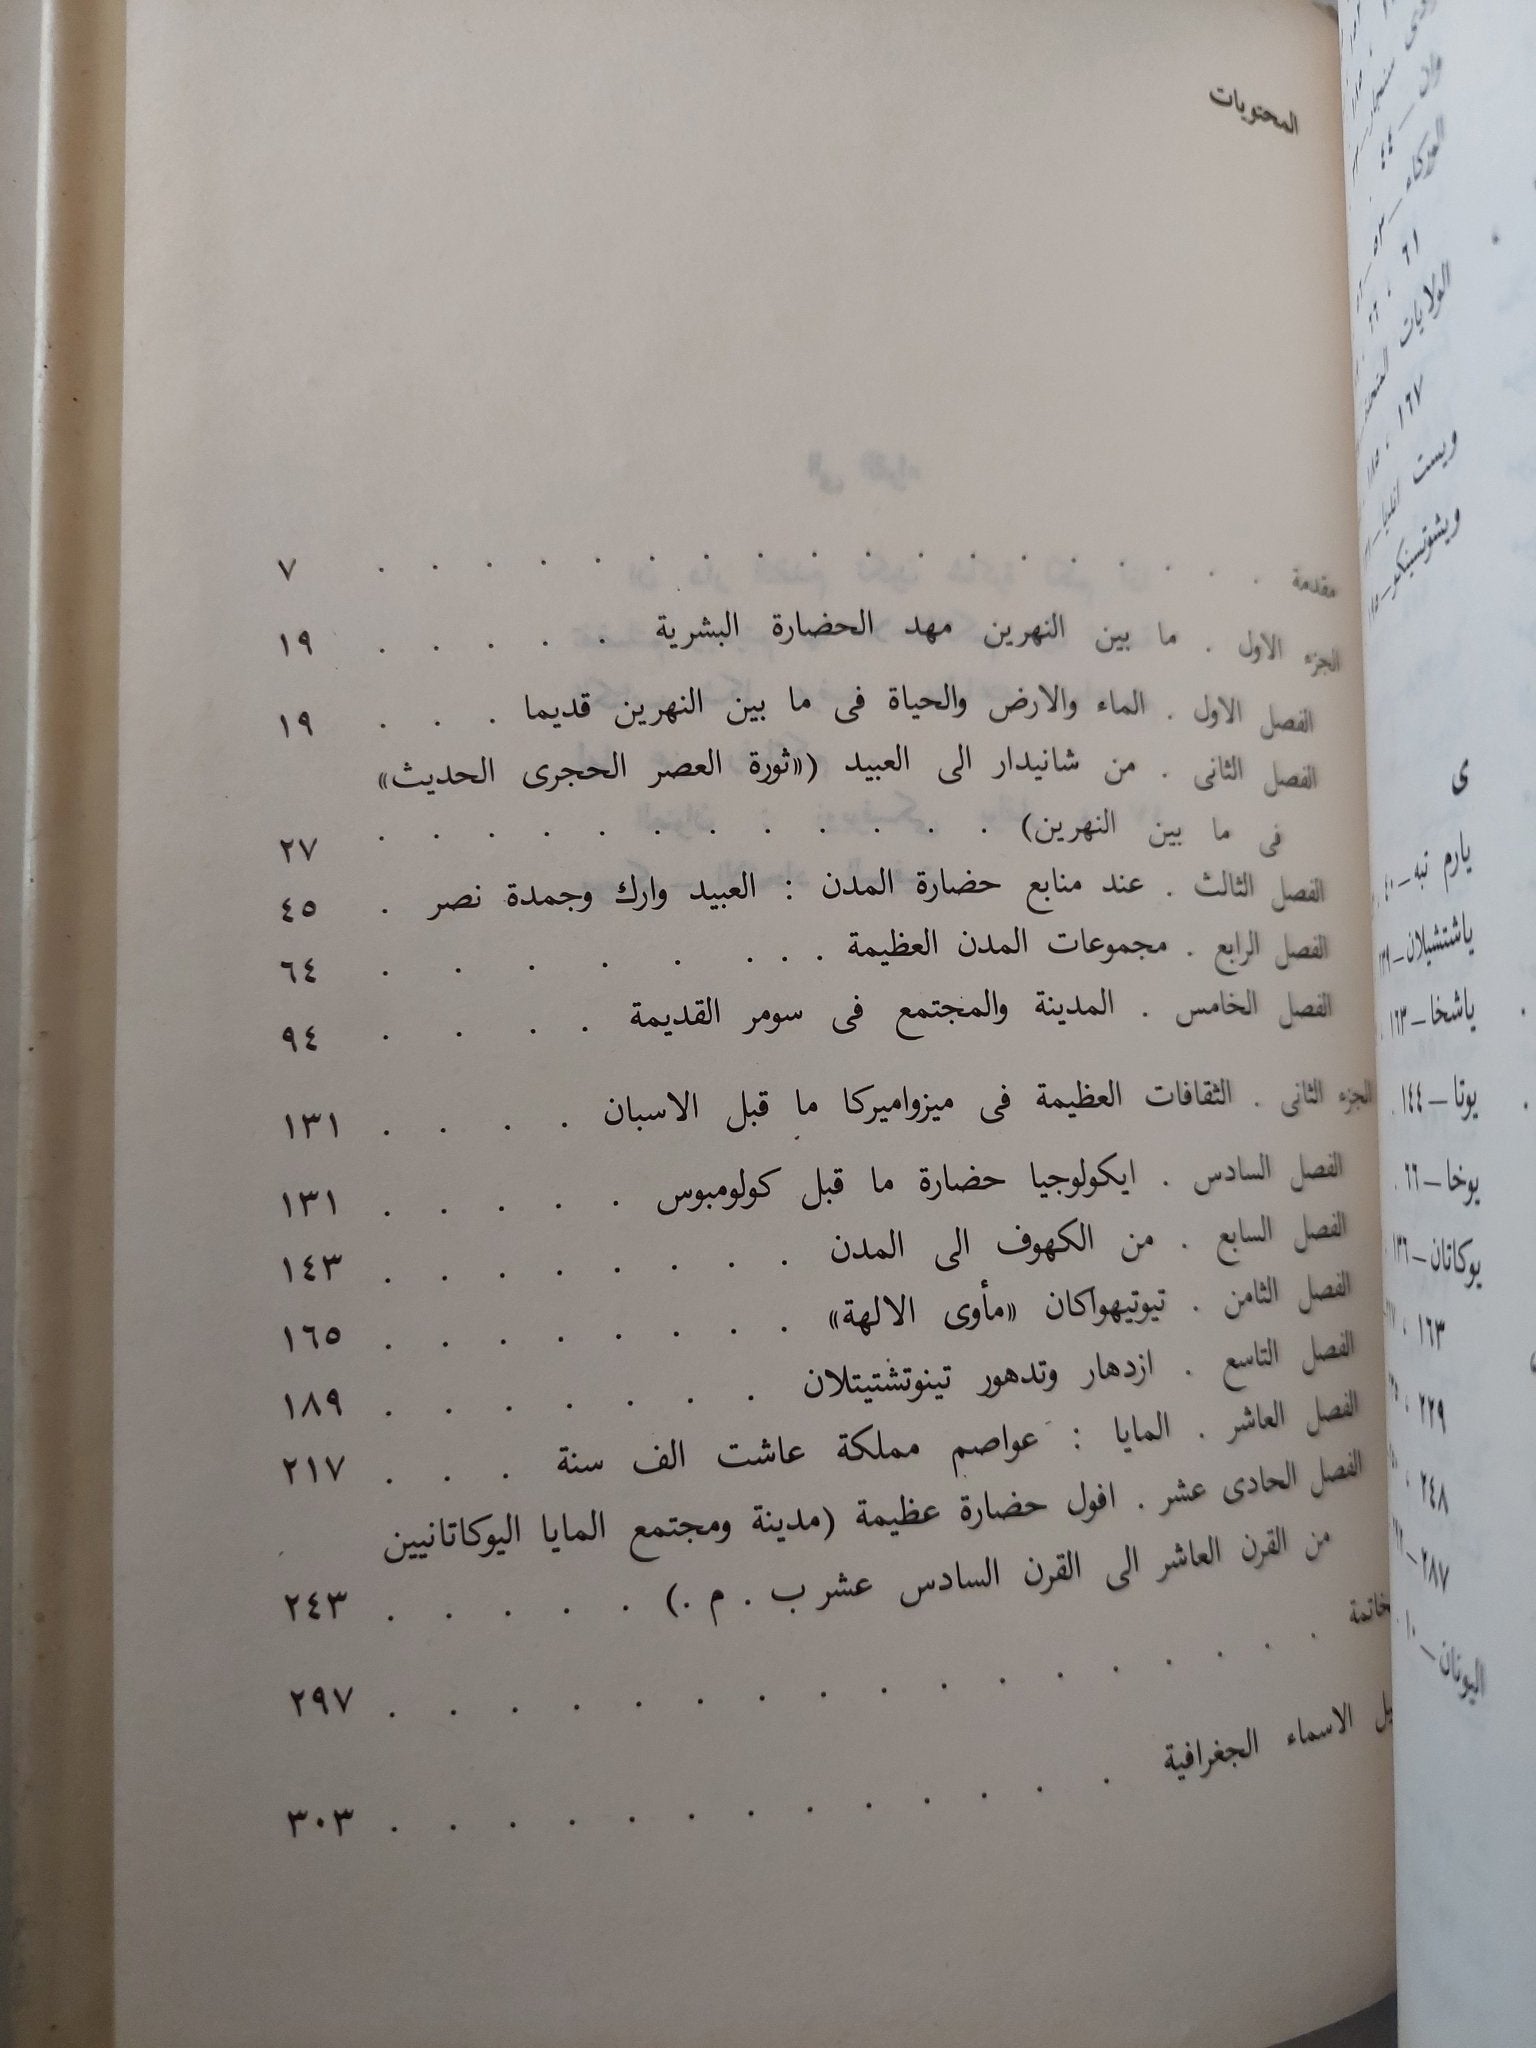 المحتويات
مقدمة . . . . . . . . . . . . . . . . . . ٧
الجزء الاول . ما بين النهرين مهد الحضارة البشرية . . . . . ١٩
الفصل الاول . الماء والارض والحياة فى ما بين النهرين قديما . . . ١٩
الفصل الثانى . من شانيدار الى العبيد («ثورة العصر الحجرى الحديث»
فى ما بين النهرين) . . . . . . . . . . . . ٢٧
الفصل الثالث . عند منابع حضارة المدن : العبيد وارك وجمدة نصر . ٤٥
الفصل الرابع . مجموعات المدن العظيمة . . . . . . . . . ٦٤
الفصل الخامس . المدينة والمجتمع فى سومر القديمة . . . . ٩٤
الجزء الثانى . الثقافات العظيمة فى ميزواميركا ما قبل الاسبان . . . . ١٣١
الفصل السادس . ايكولوجيا حضارة ما قبل كولومبوس . . . . . ١٣١
الفصل السابع . من الكهوف الى المدن . . . . . . . . ١٤٣
الفصل الثامن . تيوتيهواكان «مأوى الالهة» . . . . . . . . ١٦٥
الفصل التاسع . ازدهار وتدهور تينوتشتيتلان . . . . . . . ١٨٩
الفصل العاشر . المايا : عواصم مملكة عاشت الف سنة . . . ٢١٧
الفصل الحادى عشر . افول حضارة عظيمة (مدينة ومجتمع المايا اليوكاتانيين
من القرن العاشر الى القرن السادس عشر ب . م .) . . . . . ٢٤٣
خاتمة . . . . . . . . . . . . . . . . . ٢٩٧
الاسماء الجغرافية . . . . . . . . . . . . . ٣٠٣
وان – ٤٤
الوركاء – ٥٣
٦١ ، ٦٦
الولايات
١٦٧ ،
ويست انديا –
ى
يارم تبه – ٤٠
ياشتشيلان – ١٣٩
ياشخا – ١٦٣
يوتا – ١٤٤ .
يوخا – ٦٦ .
يوكاتان – ١٣٦
١٦٣ ،
٢٢٩ ،
٢٤٨ ،
٢٨٧ –
اليونان – ١٠